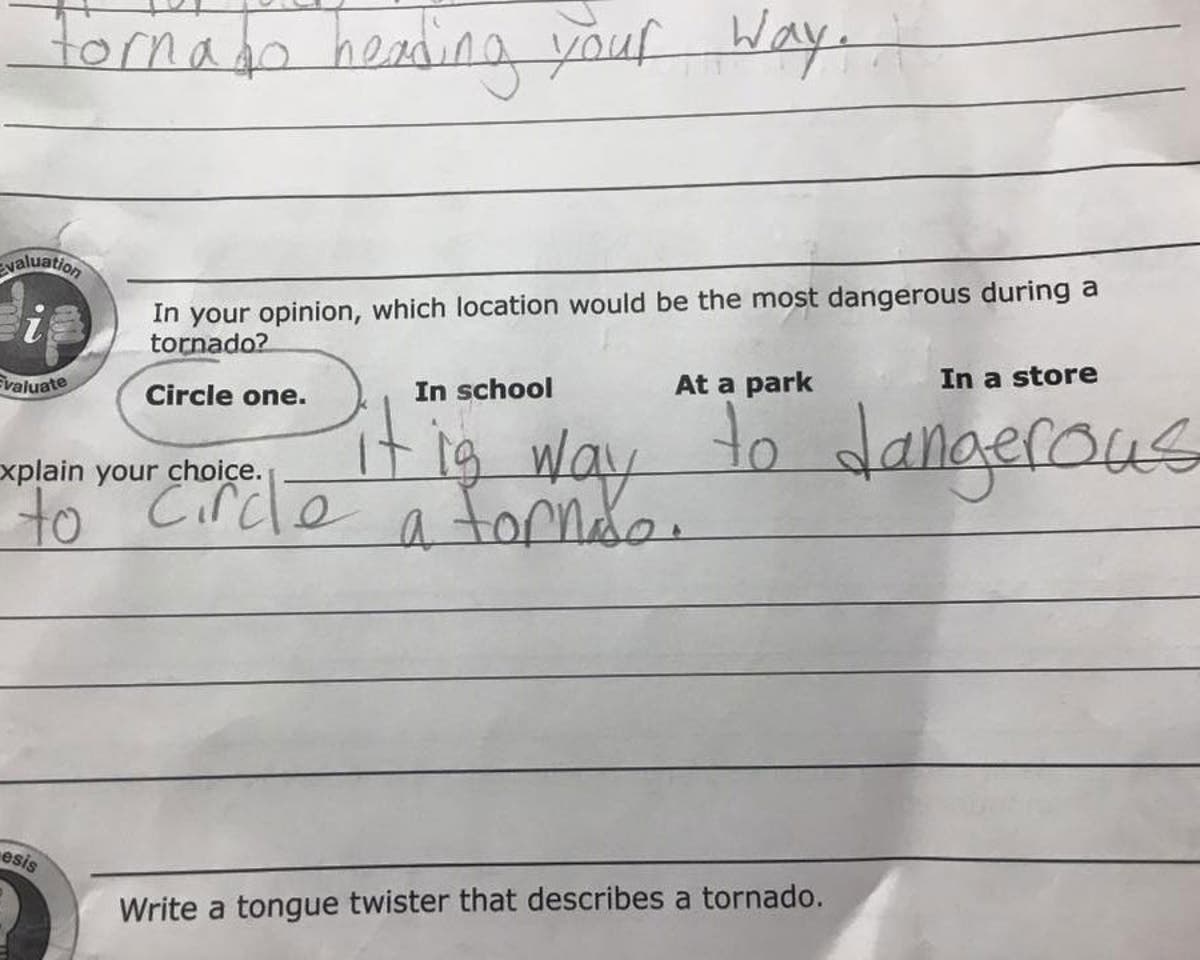 tornado heading your way.
Evaluation
In your opinion, which location would be the most dangerous during a
tornado?
Evaluate
Circle one. In school At a park In a store
xplain your choice. it is way to dangerous
to circle a tornado.
esis
Write a tongue twister that describes a tornado.